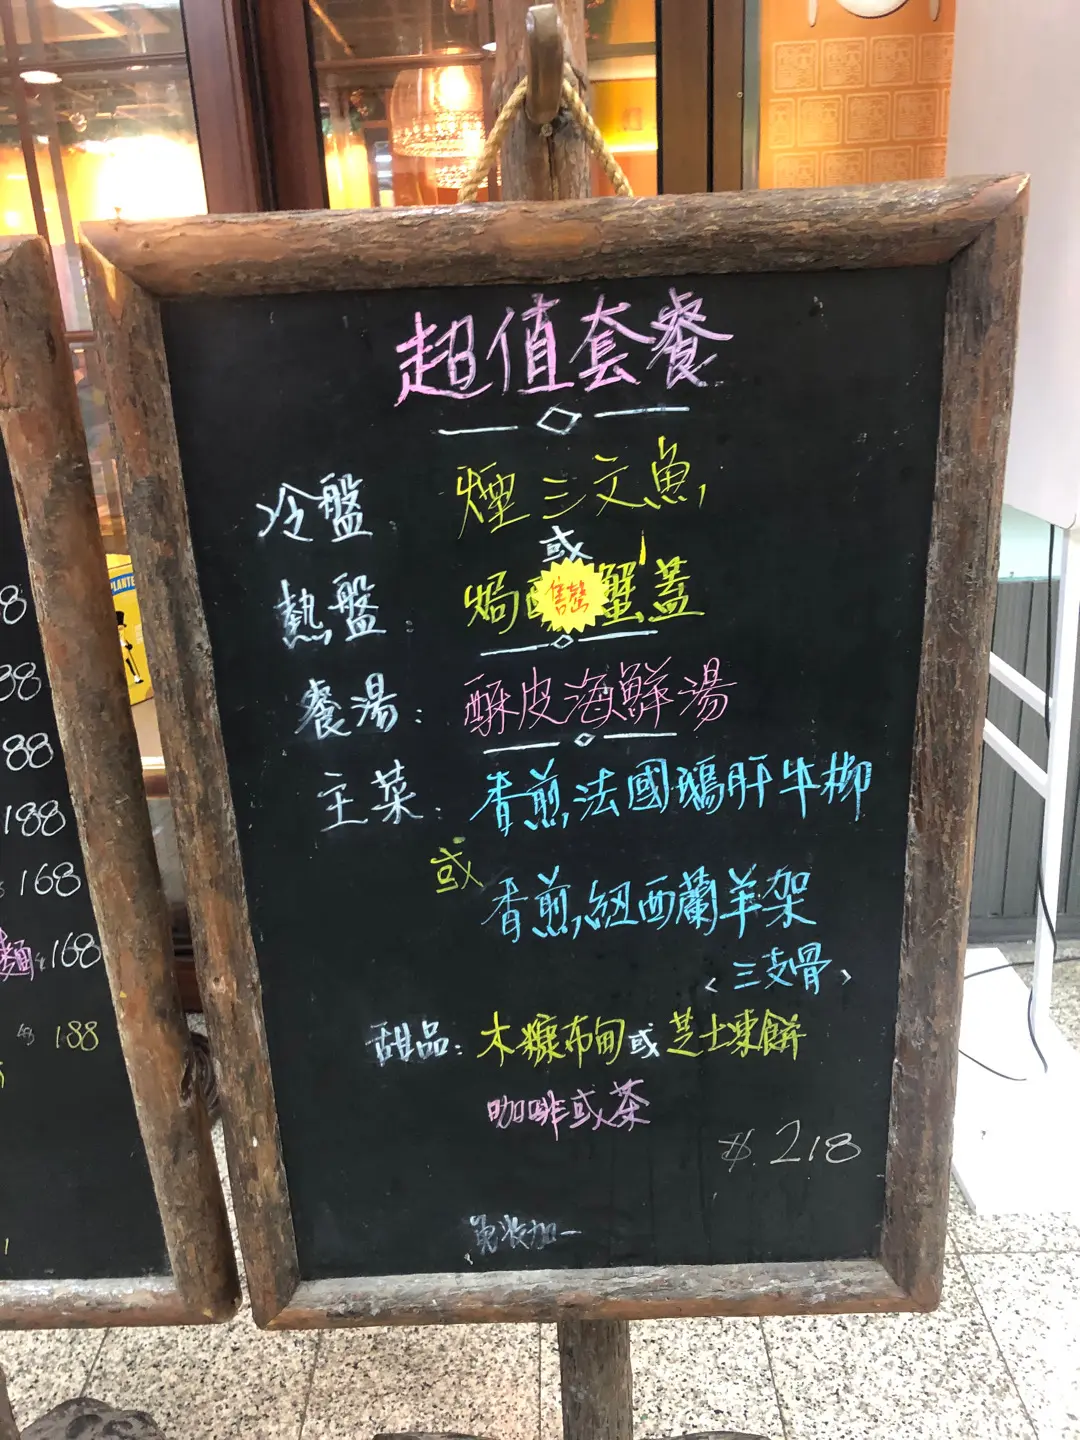 超值套餐
冷盤 煙三文魚
或
熱盤: 焗 售罄 蟹蓋
餐湯: 酥皮海鮮湯
主菜: 香煎法國鵝肝牛柳
或 香煎紐西蘭羊架
<三支骨>
甜品: 木糠布甸或芝士凍餅
咖啡或茶
$.218
免收加一
PLANTE
8
38
88
188
168
麵 168
188